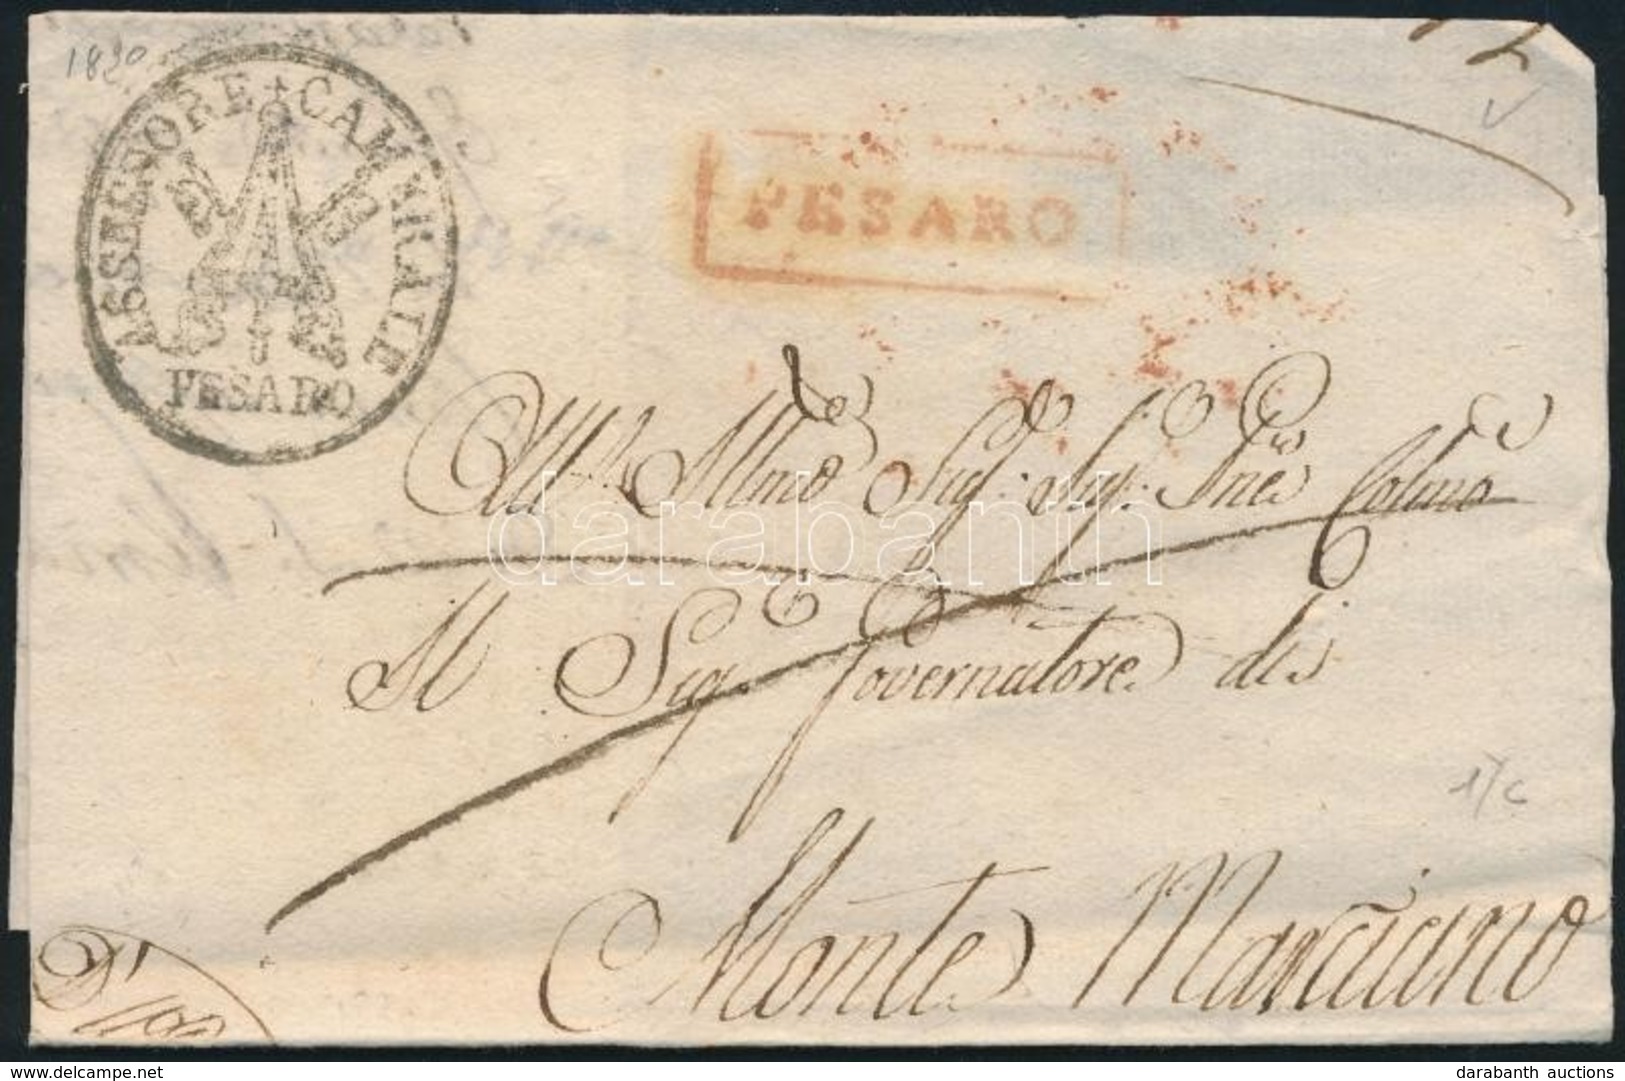 1830
ASSESSORE CAMERALE
PESARO
PESARO
All' Illmo Sig. Sig. Pne Colmo
Il Sig. Governatore di
Monte Marciano
darabanth
darabanth auctions